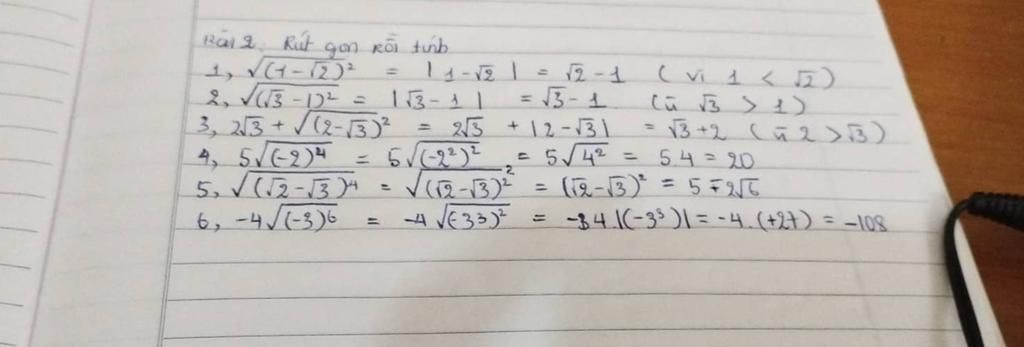 Bài 2. Rút gọn rồi tính
1, √(1-√2)² = |1-√2| = √2-1 (vì 1 < √2)
2, √(√3-1)² = |√3-1| = √3-1 (vì √3 > 1)
3, 2√3 + √(2-√3)² = 2√3 + |2-√3| = √3+2 (vì 2 > √3)
4, 5√(-2)⁴ = 5√(-2²)² = 5√4² = 5.4 = 20
5, √(√2-√3)⁴ = √((√2-√3)²)² = (√2-√3)² = 5-2√6
6, -4√(-3)⁶ = -4√(-3³)² = -4.|(-3³)| = -4.(+27) = -108